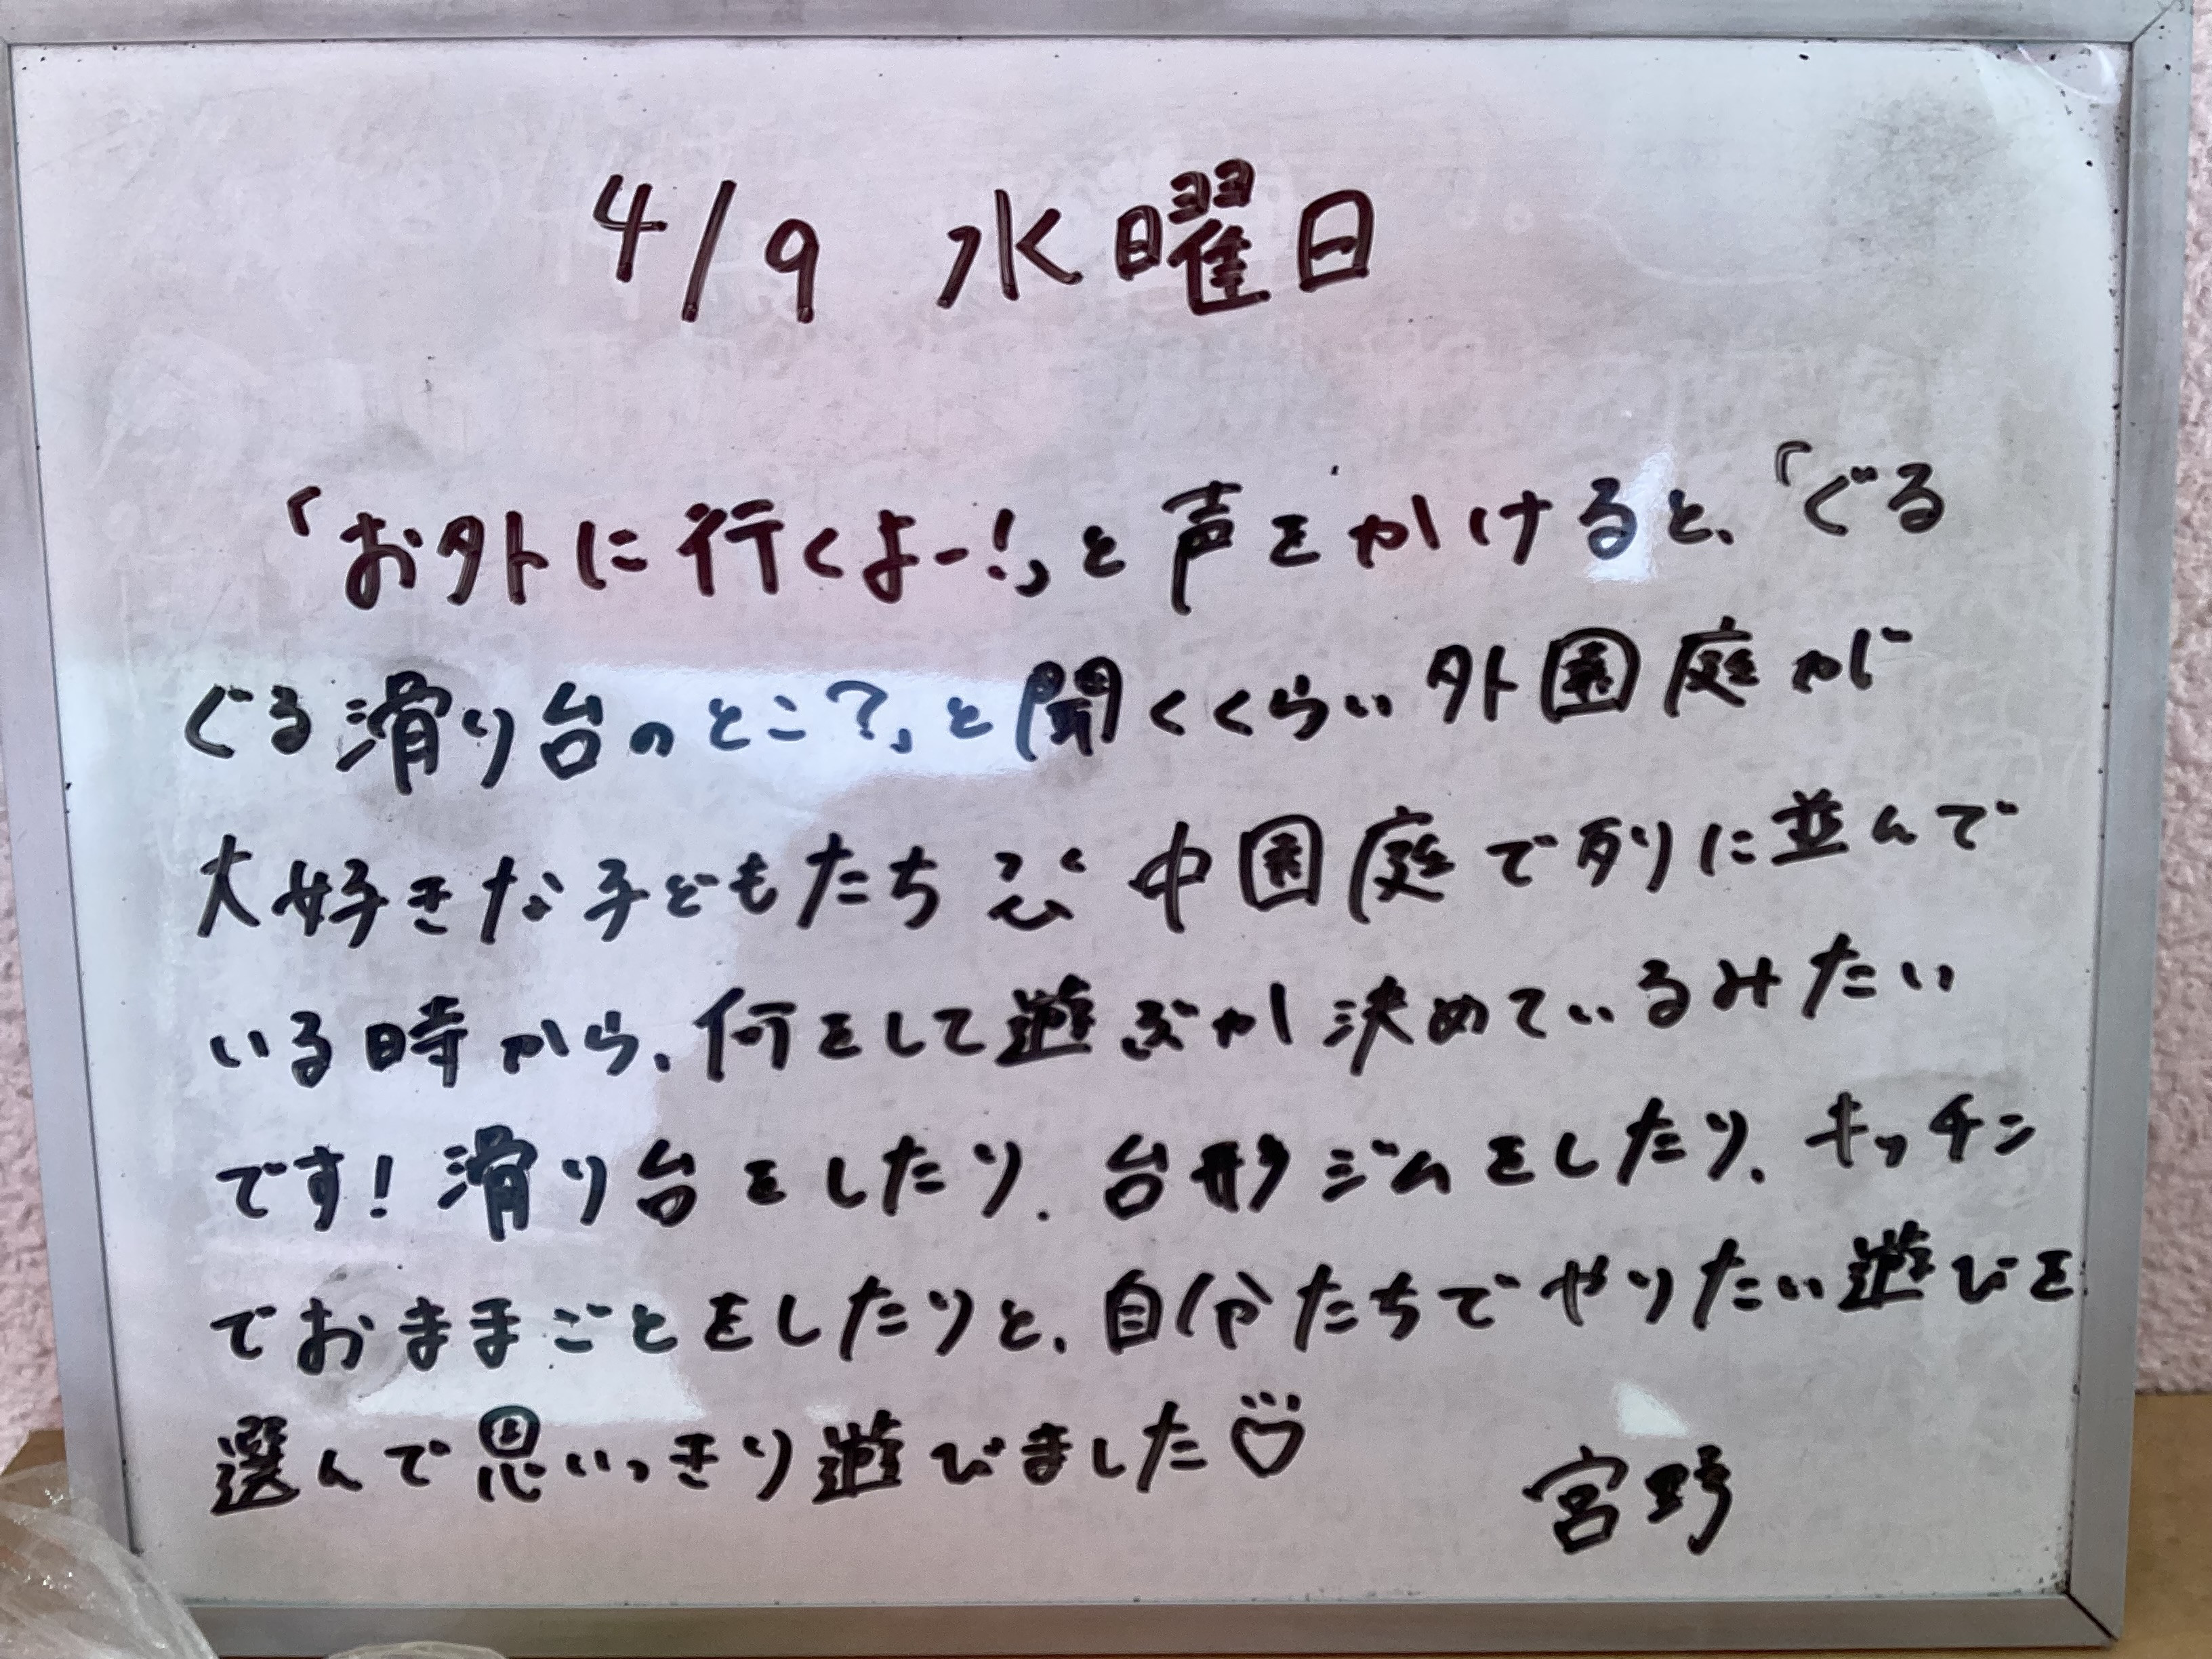 4/9 水曜日
「お外に行くよー!」と声をかけると、「ぐる
ぐる滑り台のとこ?」と聞くくらい外園庭が
大好きな子どもたち 中園庭で列に並んで
いる時から、何をして遊ぶか決めているみたい
です!滑り台をしたり、台形ジムをしたり、キッチン
でおままごとをしたりと、自分たちでやりたい遊びを
選んで思いっきり遊びました♡
宮野